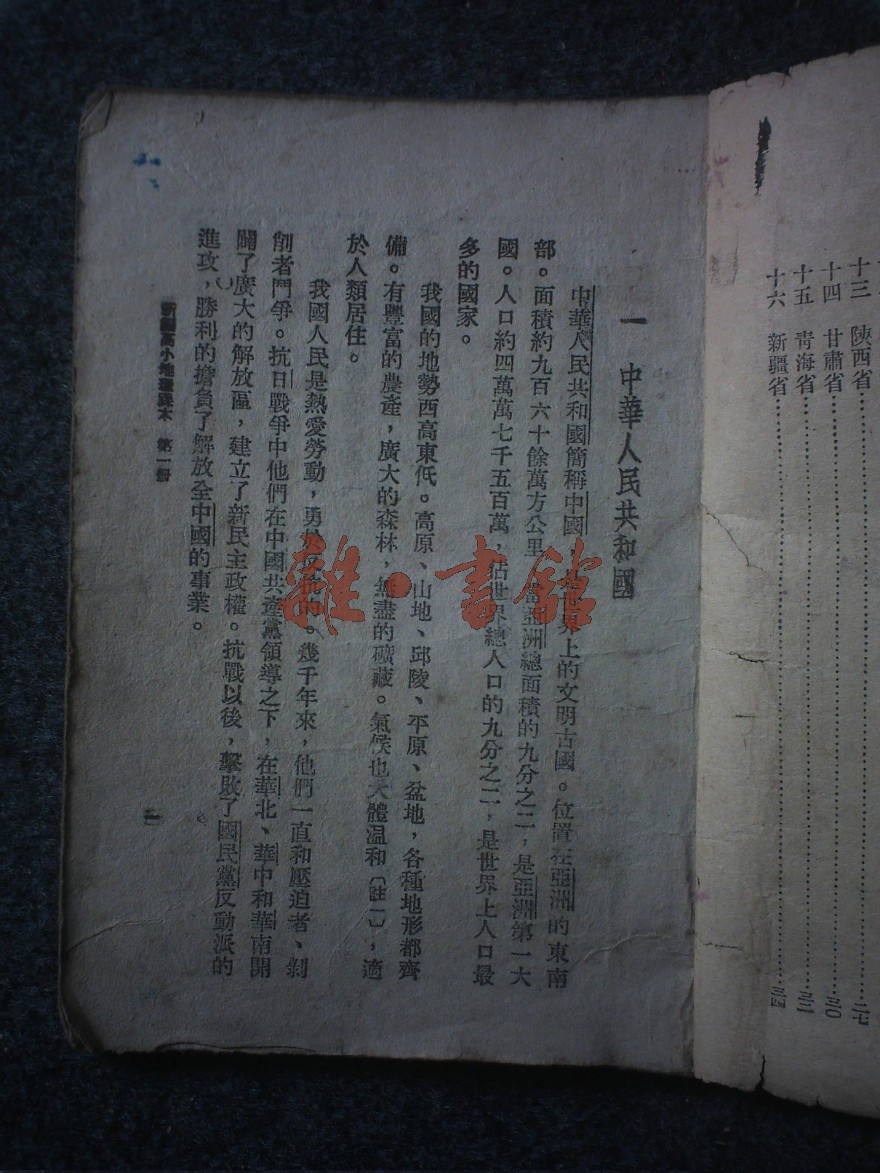 十三 陝西省……………二七
十四 甘肅省……………三〇
十五 青海省……………三二
十六 新疆省……………三四
一 中華人民共和國
中華人民共和國簡稱中國，世界上的文明古國。位置在亞洲的東南
部。面積約九百六十餘萬方公里，當亞洲總面積的九分之二，是亞洲第一大
國。人口約四萬萬七千五百萬，佔世界總人口的九分之二，是世界上人口最
多的國家。
我國的地勢西高東低。高原、山地、邱陵、平原、盆地，各種地形都齊
備。有豐富的農產，廣大的森林，無盡的礦藏。氣候也大體温和〔註一〕，適
於人類居住。
我國人民是熱愛勞動，勇於反抗的。幾千年來，他們一直和壓迫者、剝
削者鬥爭。抗日戰爭中他們在中國共產黨領導之下，在華北、華中和華南開
闢了廣大的解放區，建立了新民主政權。抗戰以後，擊敗了國民黨反動派的
進攻，勝利的擔負了解放全中國的事業。
新編高小地理課本 第一册
一
雜·書館